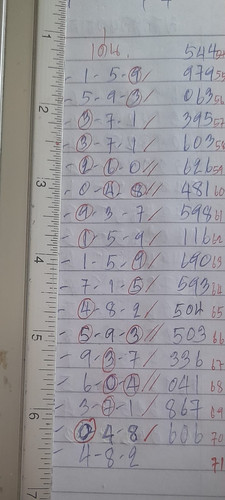 เด่น 544
1-5-9/ 979 55
5-9-3/ 063 56
3-7-1/ 395 57
3-7-1/ 603 58
2-6-0/ 626 59
0-4-8/ 481 60
9-3-7/ 598 61
1-5-9/ 116 62
1-5-9/ 690 63
7-1-5/ 593 64
4-8-2/ 504 65
5-9-3/ 503 66
9-3-7/ 336 67
6-0-4/ 041 68
3-7-1/ 867 69
0-4-8/ 606 70
4-8-2 71
1
2
3
4
5
6
7